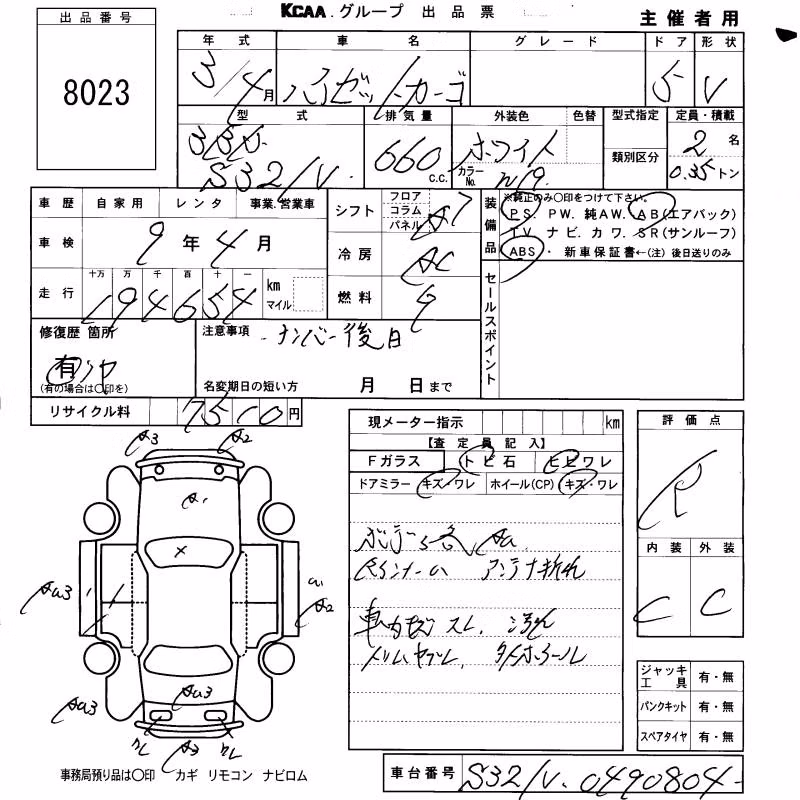 出品番号
8023
KCAA.グループ 出品票
主催者用
年式 車名 グレード ドア 形状
3/4月 ハイゼットカーゴ 5 V
型式 排気量 外装色 色替 型式指定 定員・積載
3BD-
S321V. 660 c.c. ホワイト カラーNo. W19. 類別区分 2名 0.35トン
車歴 自家用 レンタ 事業.営業車
シフト フロア コラム パネル AT
装備品 ※純正のみ〇印をつけて下さい。
PS. PW. 純AW. AB(エアバック)
TV ナビ.カワ.SR(サンルーフ)
ABS・ 新車保証書←(注)後日送りのみ
車検 9年4月
冷房 AC
走行 十万 万 千 百 十 一 km マイル
194654
燃料 G
セールスポイント
修復歴 箇所
有
(有の場合は〇印を)
注意事項 ナンバー後日
名変期日の短い方 月 日まで
リサイクル料 7510円
現メーター指示 km
【査定員記入】
Fガラス トビ石 ヒビワレ
ドアミラー キズ/ワレ ホイール(CP) キズ・ワレ
アンテナ折れ
車内 スレ.汚れ
評価点
R
内装 外装
C C
A3 A2
A1
×
Aa3
A2
Aa3
Aa3
A3
ジャッキ工具 有・無
パンクキット 有・無
スペアタイヤ 有・無
事務局預り品は〇印 カギ リモコン ナビロム
車台番号 S321V-0490804-